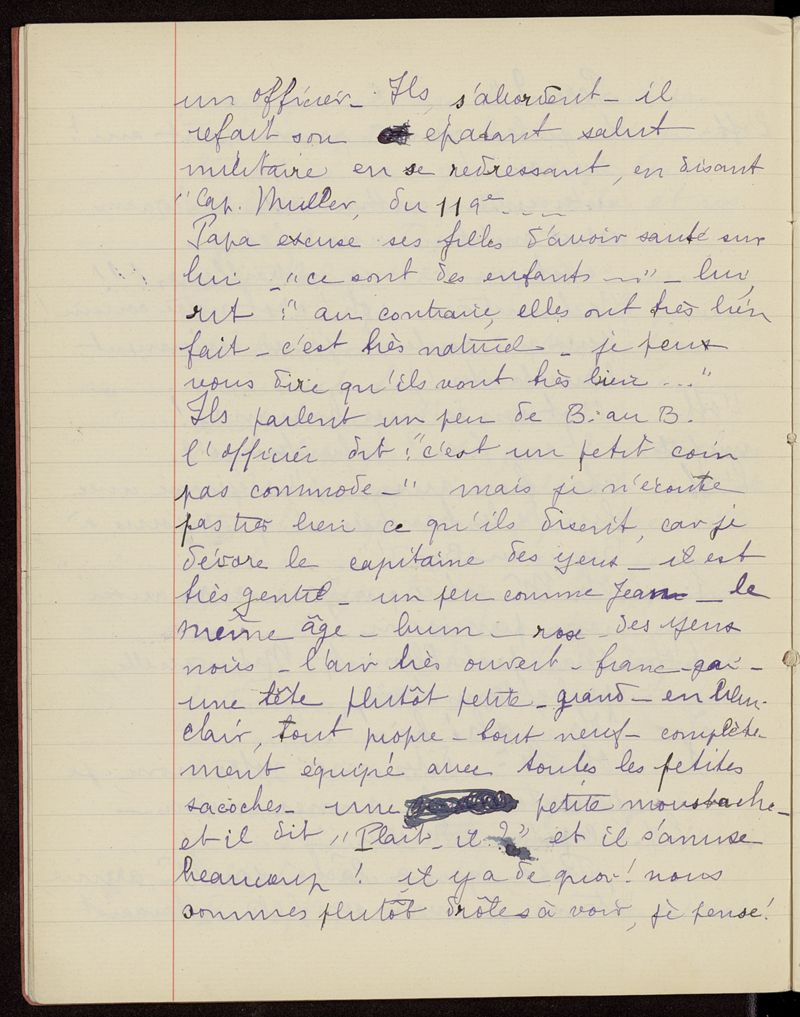 un officier. Ils s'abordent – il
refait son épatant salut
militaire en se redressant, en disant
"Cap. Muller, du 119e ....
Papa excuse ses filles d'avoir sauté sur
lui – "ce sont des enfants ...." – lui,
rit : "au contraire, elles ont très bien
fait – c'est très naturel – je peux
vous dire qu'ils vont très bien ..."
Ils parlent un peu de B. au B.
l'officier dit : "c'est un petit coin
pas commode –" mais je n'écoute
pas très bien ce qu'ils disent, car je
dévore le capitaine des yeux – il est
très gentil – un peu comme Jean – le
même âge – brun – rose – des yeux
noirs – l'air très ouvert – franc – gai –
une tête plutôt petite – grand – en bleu-
clair, tout propre – tout neuf – complète-
ment équipé avec toutes les petites
sacoches – une petite moustache –
et il dit "Plaît-il ?" et il s'amuse
beaucoup ! il y a de quoi ! nous
sommes plutôt drôles à voir, je pense !